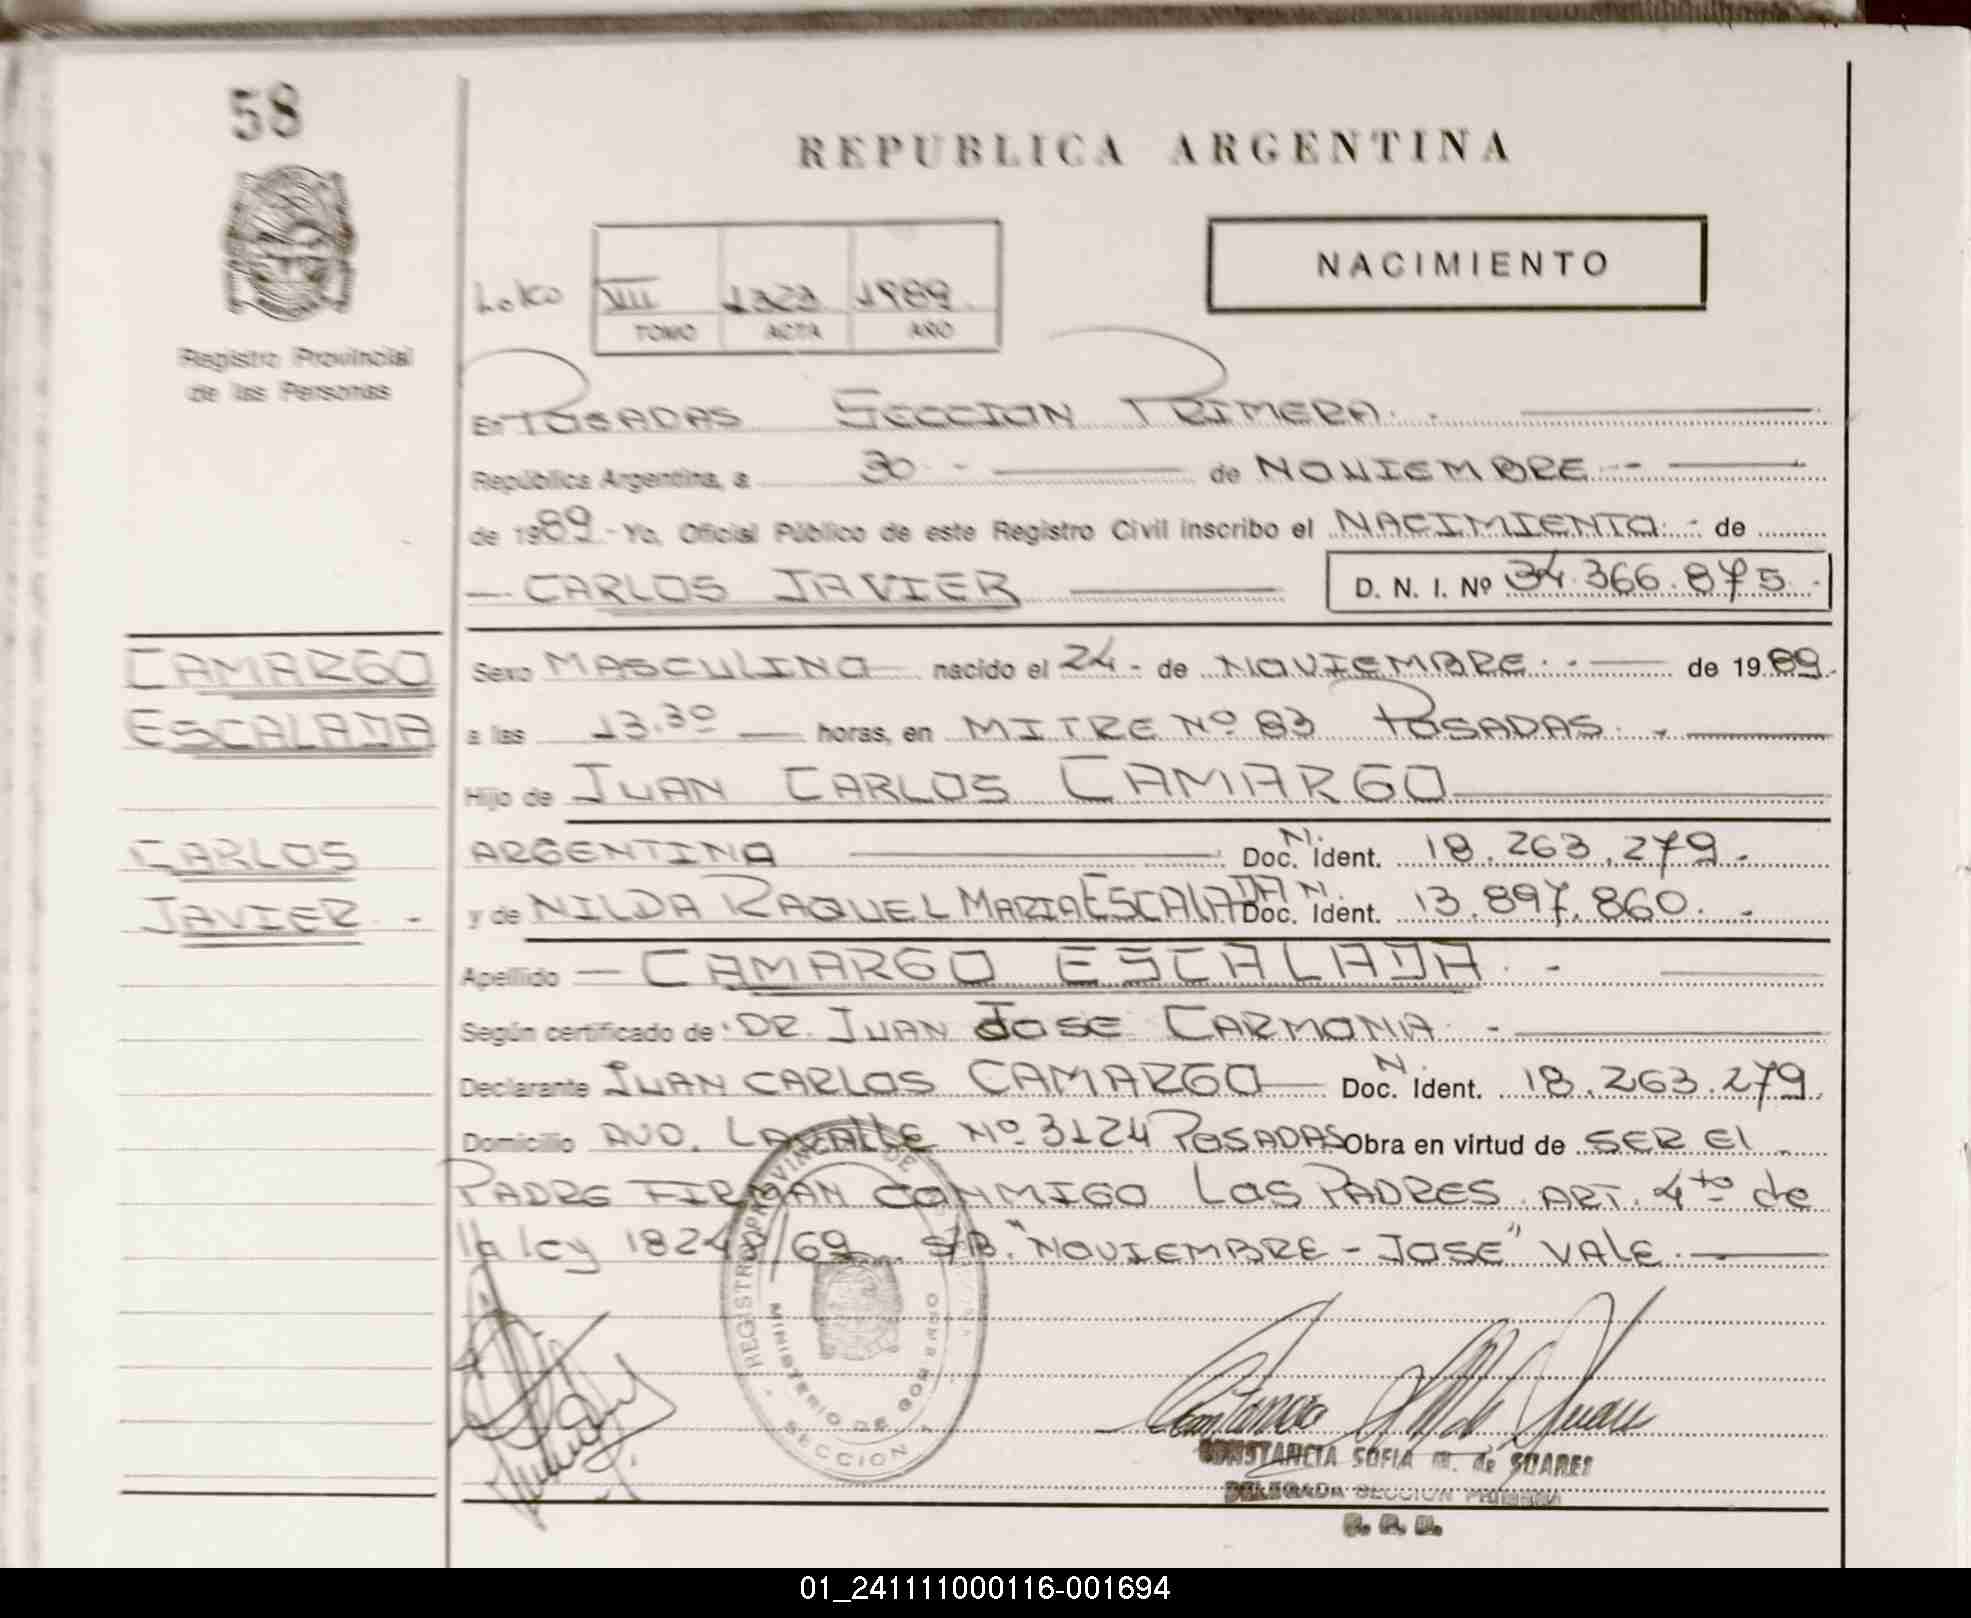 58
REPUBLICA ARGENTINA
NACIMIENTO
VIII 1989
TOMO ACTA AÑO
Registro Provincial
de las Personas
En POSADAS SECCION PRIMERA.-
República Argentina, a 30.- de NOVIEMBRE.-
de 1989.- Yo, Oficial Público de este Registro Civil inscribo el NACIMIENTO.- de
— CARLOS JAVIER — D. N. I. Nº 34.366.875.-
CAMARGO
ESCALADA
CARLOS
JAVIER.-
Sexo MASCULINO nacido el 24.- de NOVIEMBRE.- de 1989.
a las 13.30 — horas, en MITRE Nº 83 POSADAS.-
Hijo de JUAN CARLOS CAMARGO
ARGENTINA — Doc. N. Ident. 18.263.279.-
y de NILDA RAQUEL MARIA ESCALADA Doc. N. Ident. 13.897.860.-
Apellido — CAMARGO ESCALADA.-
Según certificado de DR. JUAN JOSE CARMONA.-
Declarante JUAN CARLOS CAMARGO — Doc. N. Ident. 18.263.279.
Domicilio AVD. LAVALLE Nº 3124 POSADAS Obra en virtud de SER EL
PADRE FIRMAN CONMIGO LOS PADRES. ART. 4to de
la ley 18248/69 S/B. "NOVIEMBRE - JOSE" VALE.—
REGISTRO PROVINCIAL DE LAS
MINISTERIO DE GOBIERNO
SECCION 1
CONSTANCIA SOFIA M. de SUARES
DELEGADA SECCION PRIMERA
01_241111000116-001694